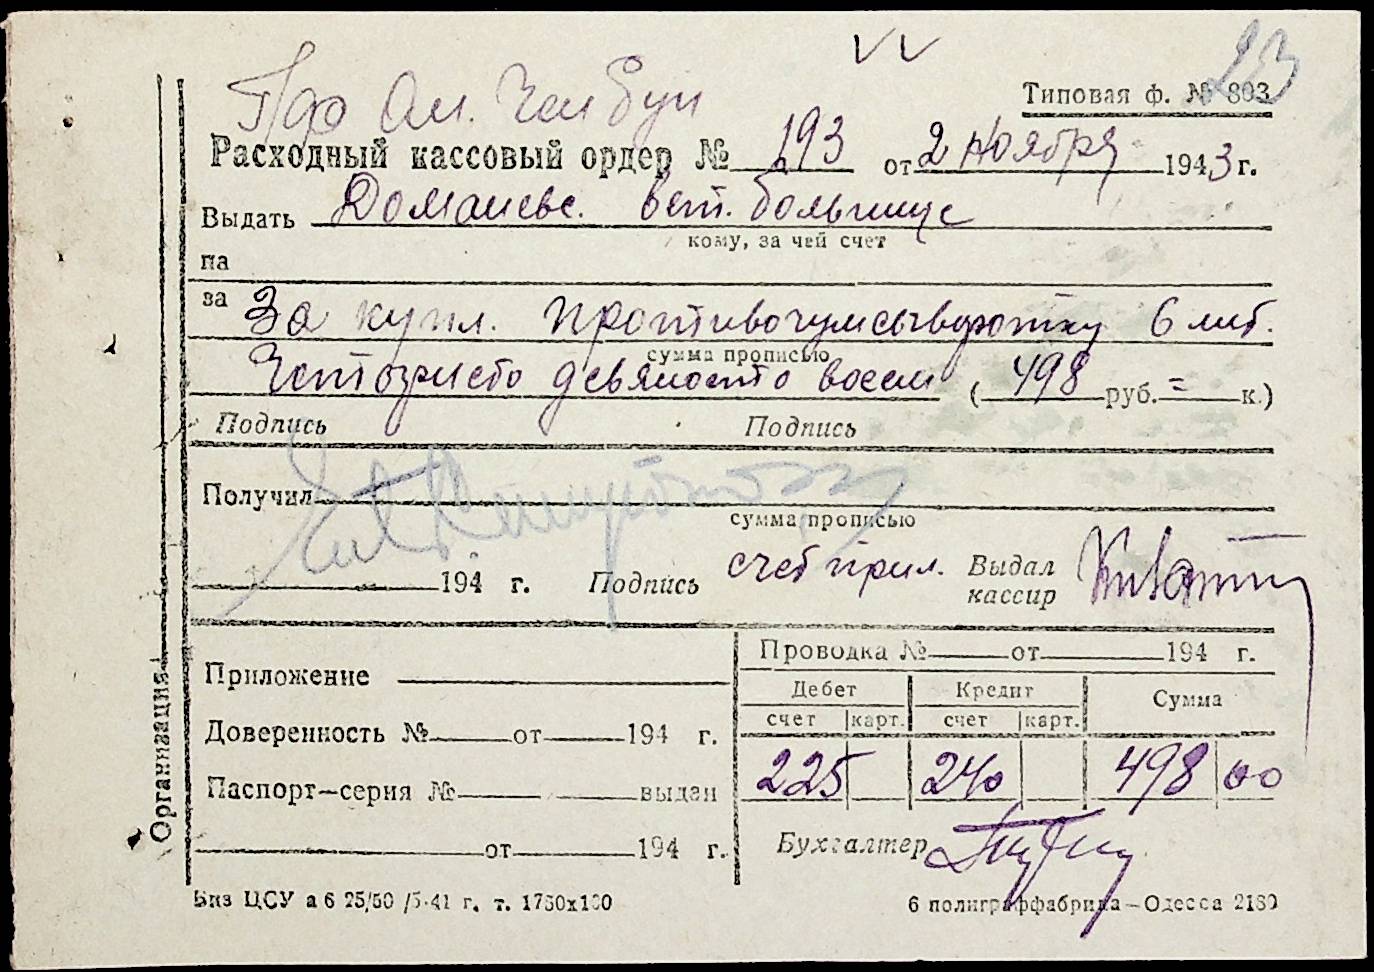 23
Типовая ф. № 803
Расходный кассовый ордер № 193 от 2 ноября 1943 г.
Выдать Доманевс. вет. больнице
кому, за чей счет
на
за За купл. противочумсыворотку 6 лит.
сумма прописью
Четыреста девяносто восем (498 руб. = к.)
Подпись Подпись
Получил
сумма прописью
194 г. Подпись счет прил. Выдал кассир
Организация
Проводка № от 194 г.
Приложение
Дебет Кредит Сумма
счет карт. счет карт.
Доверенность № от 194 г.
225 240 498 00
Паспорт—серия № выдан
от 194 г.
Бухгалтер
Биз ЦСУ а 6 25/50 /5-41 г. т. 1750х100
6 полиграффабрика—Одесса 2180